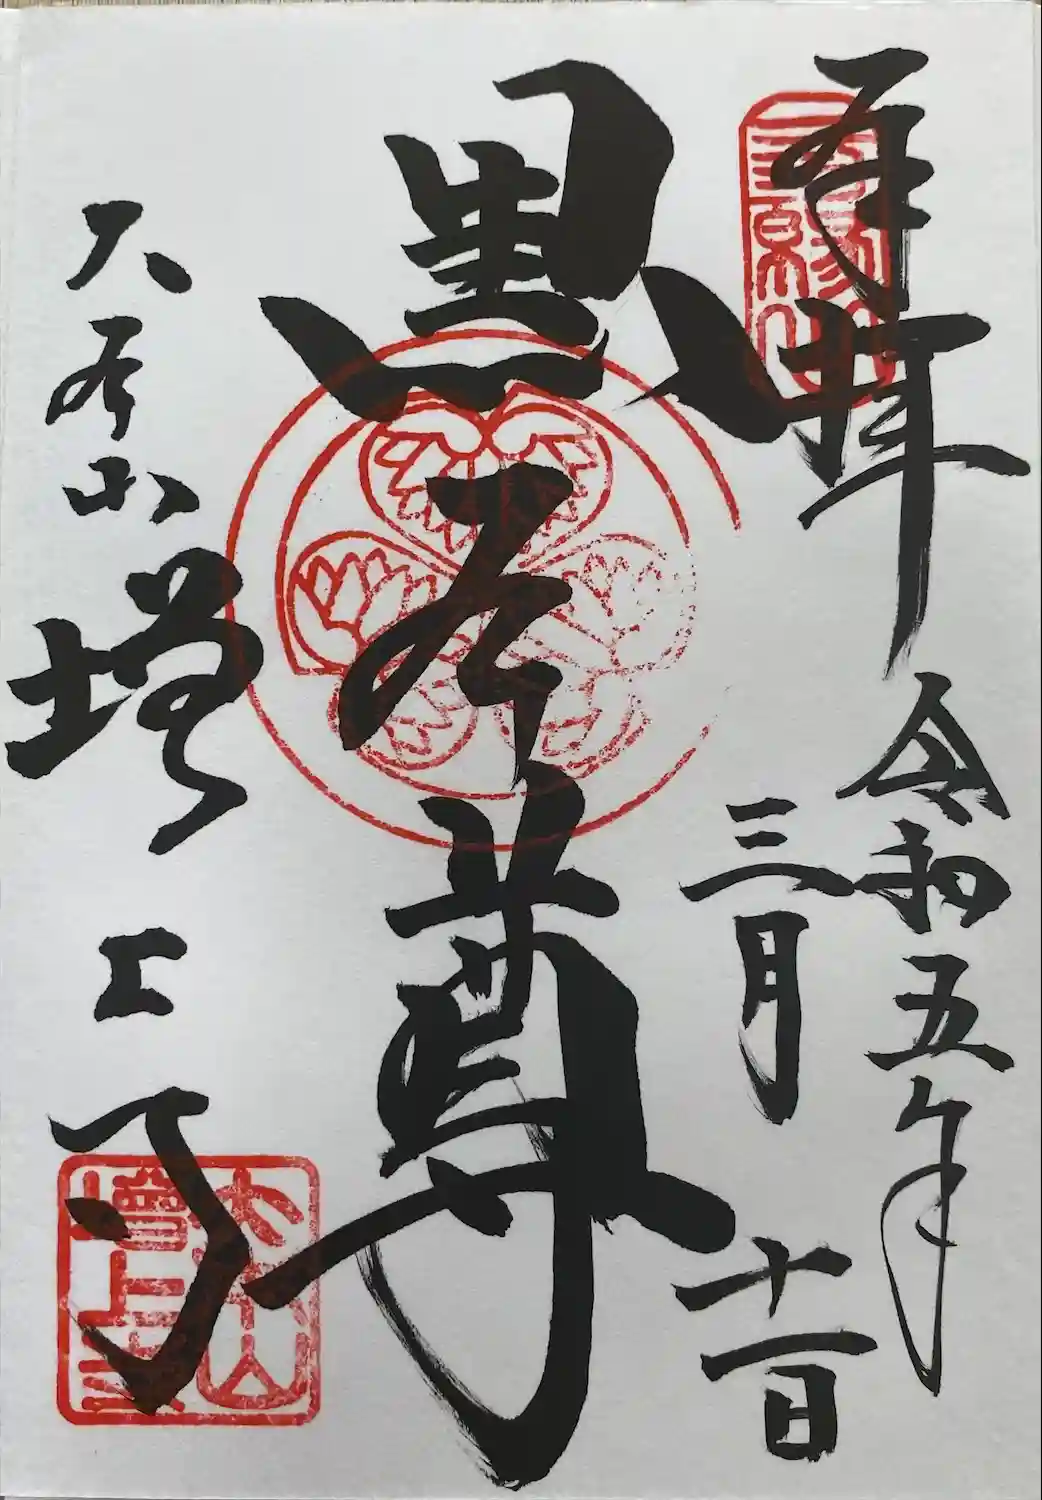 奉拝
令和五年
三月十一日
三縁山
黒本尊
大本山
増上寺
大本山
増上寺